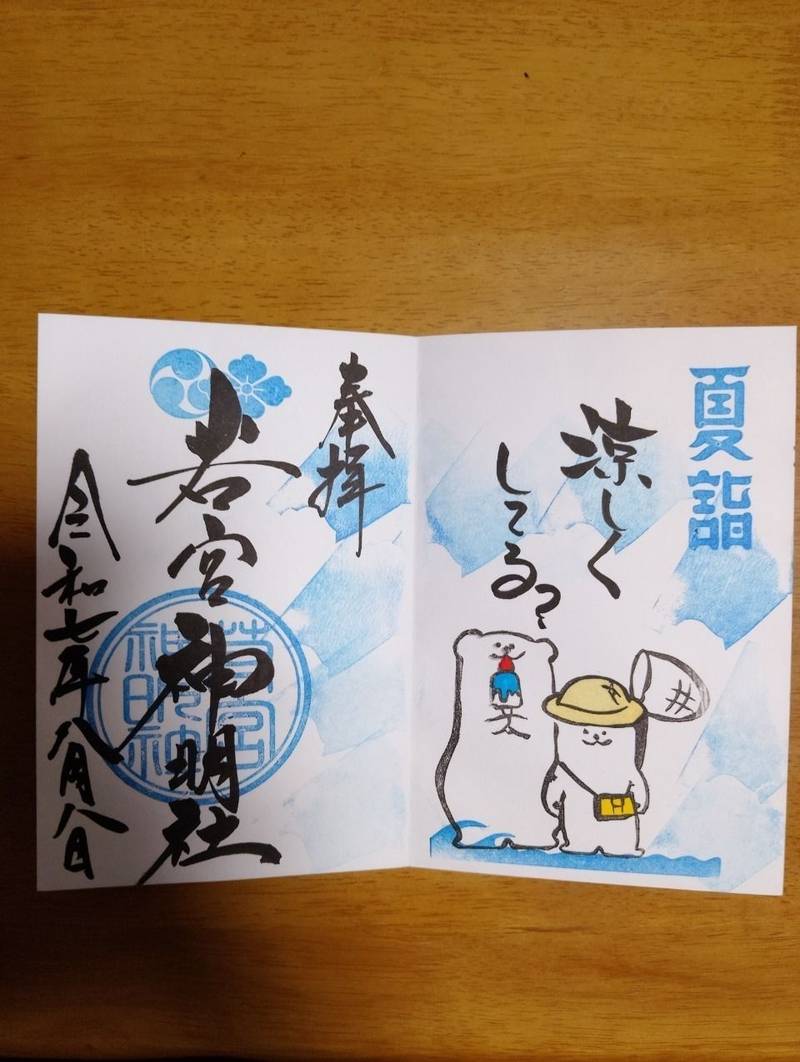 夏詣
涼しく
してる?
奉拝
若宮神明社
令和七年八月八日
若宮
神明社